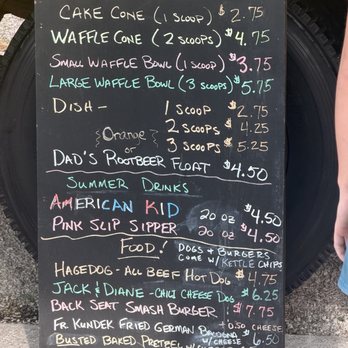 CAKE CONE (1 SCOOP) $2.75
WAFFLE CONE (2 SCOOPS) $4.75
SMALL WAFFLE BOWL (1 SCOOP) $3.75
LARGE WAFFLE BOWL (3 SCOOPS) $5.75
DISH - 1 SCOOP $2.75
2 SCOOPS $4.25
3 SCOOPS $5.25
{Orange}
or
DAD'S ROOTBEER FLOAT $4.50
SUMMER DRINKS
AMERICAN KID 20 OZ $4.50
PINK SLIP SIPPER 20 OZ $4.50
FOOD! DOGS & BURGERS
COME W/ KETTLE CHIPS
HAGEDOG - ALL BEEF HOT DOG $4.75
JACK & DIANE - CHILI CHEESE DOG $6.25
BACK SEAT SMASH BURGER $7.75
+ 0.50 CHEESE
FR. KUNDEK FRIED GERMAN BOLOGNA
W/CHEESE 6.50
BUSTED BAKED PRETZEL